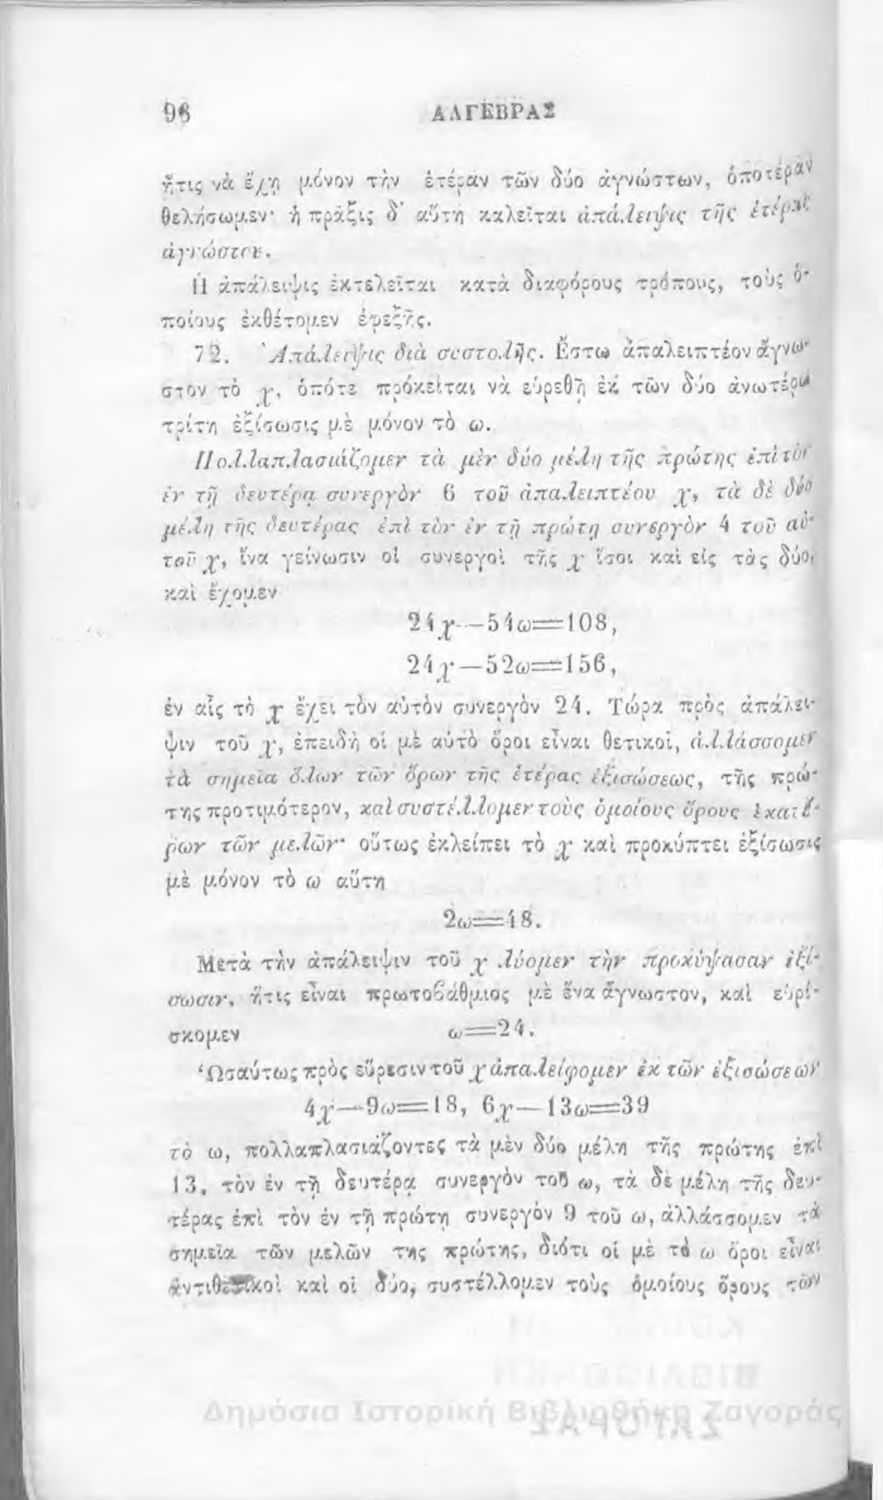 96 ΑΛΓΕΒΡΑΣ
ἥτις νὰ ἔχῃ μόνον τὴν ἑτέραν τῶν δύο ἀγνώστων, ὁποτέραν
θελήσωμεν· ἡ πρᾶξις δ' αὕτη καλεῖται ἀπάλειψις τῆς ἑτέρας
ἀγνώστου.
Ἡ ἀπάλειψις ἐκτελεῖται κατὰ διαφόρους τρόπους, τοὺς ὁ-
ποίους ἐκθέτομεν ἐφεξῆς.
72. Ἀπάλειψις διὰ συστολῆς. Ἔστω ἀπαλειπτέον ἄγνω-
στον τὸ χ, ὁπότε πρόκειται νὰ εὑρεθῇ ἐκ τῶν δύο ἀνωτέρω
τρίτη ἐξίσωσις μὲ μόνον τὸ ω.
Πολλαπλασιάζομεν τὰ μὲν δύο μέλη τῆς πρώτης ἐπὶ τὸν
ἐν τῇ δευτέρᾳ συνεργὸν 6 τοῦ ἀπαλειπτέου χ, τὰ δὲ δύο
μέλη τῆς δευτέρας ἐπὶ τὸν ἐν τῇ πρώτῃ συνεργὸν 4 τοῦ αὐ-
τοῦ χ, ἵνα γείνωσιν οἱ συνεργοὶ τῆς χ ἴσοι καὶ εἰς τὰς δύο,
καὶ ἔχομεν
24χ—54ω=108,
24χ—52ω=156,
ἐν αἷς τὸ χ ἔχει τὸν αὐτὸν συνεργὸν 24. Τώρα πρὸς ἀπάλει-
ψιν τοῦ χ, ἐπειδὴ οἱ μὲ αὐτὸ ὅροι εἶναι θετικοὶ, ἀλλάσσομεν
τὰ σημεῖα ὅλων τῶν ὅρων τῆς ἑτέρας ἐξισώσεως, τῆς πρώ-
της προτιμότερον, καὶ συστέλλομεν τοὺς ὁμοίους ὅρους ἑκατέ-
ρων τῶν μελῶν· οὕτως ἐκλείπει τὸ χ καὶ προκύπτει ἐξίσωσις
μὲ μόνον τὸ ω αὕτη
2ω=48.
Μετὰ τὴν ἀπάλειψιν τοῦ χ λύομεν τὴν προκύψασαν ἐξί-
σωσιν, ἥτις εἶναι πρωτοβάθμιος μὲ ἕνα ἄγνωστον, καὶ εὑρί-
σκομεν ω=24.
Ὡσαύτως πρὸς εὕρεσιν τοῦ χ ἀπαλείφομεν ἐκ τῶν ἐξισώσεων
4χ—9ω=18, 6χ—13ω=39
τὸ ω, πολλαπλασιάζοντες τὰ μὲν δύο μέλη τῆς πρώτης ἐπὶ
13, τὸν ἐν τῇ δευτέρᾳ συνεργὸν τοῦ ω, τὰ δὲ μέλη τῆς δευ-
τέρας ἐπὶ τὸν ἐν τῇ πρώτῃ συνεργὸν 9 τοῦ ω, ἀλλάσσομεν τὰ
σημεῖα τῶν μελῶν τῆς πρώτης, διότι οἱ μὲ τὸ ω ὅροι εἶναι
ἀντιθετικοὶ καὶ οἱ δύο, συστέλλομεν τοὺς ὁμοίους ὅρους τῶν
Δημόσια Ιστορική Βιβλιοθήκη Ζαγοράς